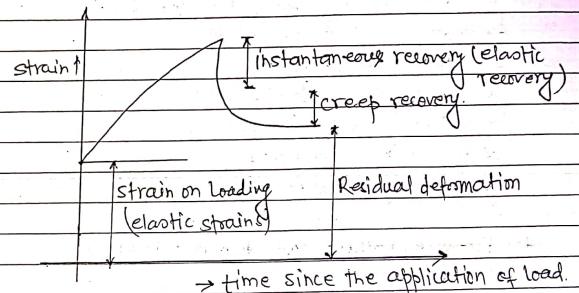 strain↑
instantaneous recovery (elastic
recovery)
creep recovery.
strain on loading
(elastic strains)
Residual deformation
→ time since the application of load.